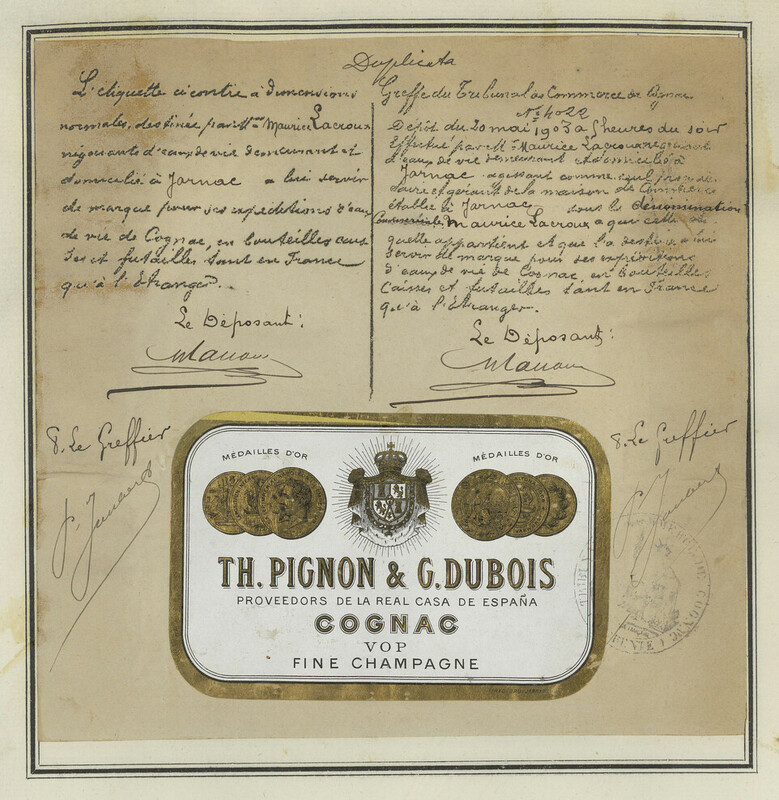 Duplicata
L'etiquette ci contre à dimensions
normales, destinée par Mr Maurice Lacroux
négociants d'eaux de vie demeurant et
domicilié à Jarnac à lui servir
de marque pour ses expéditions d'eaux
de vie de Cognac, en bouteilles cais
ses et futailles tant en France
qu'à l'Etranger.
Le Déposant:
Greffe du Tribunal de Commerce de Cognac
No 4022
Dépôt du 20 mai 1903 à heures du soir
Effectué par Mr Maurice Lacroux négociant
d'eaux de vie demeurant et domicilié à
Jarnac agissant comme seul proprié
taire et gérant de la maison de Commerce
établie à Jarnac sous la dénomination
Commerciale Maurice Lacroux a qui cette éti
quette appartient et que l'a destine a lui
servir de marque pour ses expéditions
d'eaux de vie de Cognac en Bouteilles
Caisses et futailles tant en France
qu'à l'Etranger.
Le Déposant:
P. Le Greffier
P. Le Greffier
MÉDAILLES D'OR
MÉDAILLES D'OR
TH. PIGNON & G. DUBOIS
PROVEEDORS DE LA REAL CASA DE ESPAÑA
COGNAC
VOP
FINE CHAMPAGNE